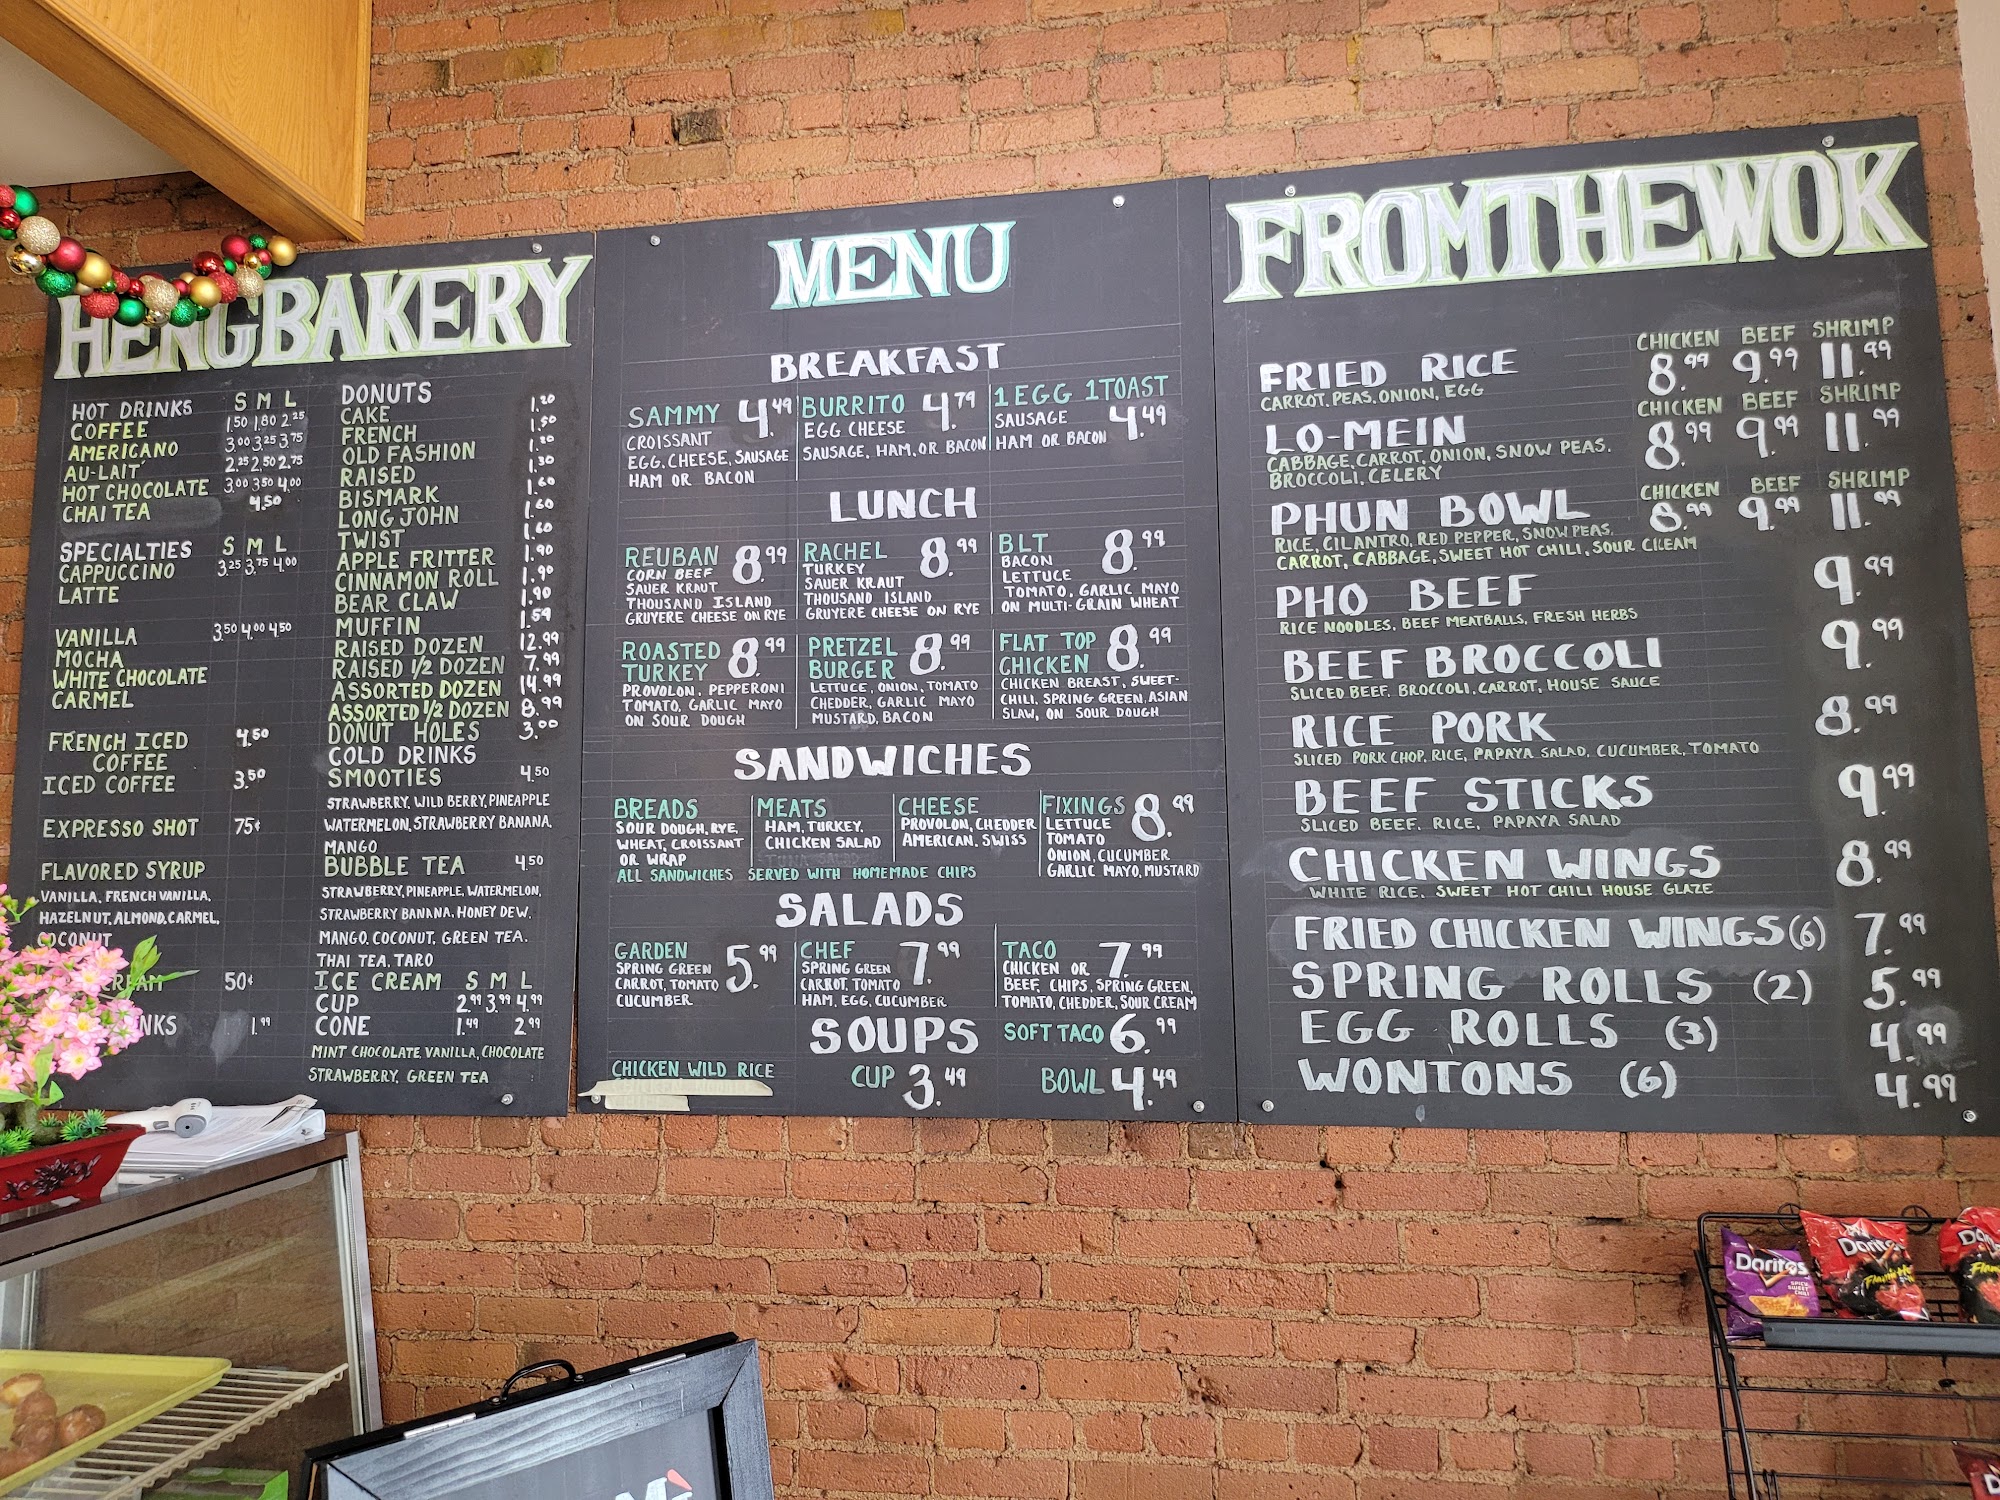 HENG BAKERY
HOT DRINKS S M L
COFFEE 1.50 1.80 2.25
AMERICANO 3.00 3.25 3.75
AU-LAIT 2.25 2.50 2.75
HOT CHOCOLATE 3.00 3.50 4.00
CHAI TEA 4.50
SPECIALTIES S M L
CAPPUCCINO 3.25 3.75 4.00
LATTE
VANILLA 3.50 4.00 4.50
MOCHA
WHITE CHOCOLATE
CARMEL
FRENCH ICED
COFFEE 4.50
ICED COFFEE 3.50
EXPRESSO SHOT 75¢
FLAVORED SYRUP
VANILLA, FRENCH VANILLA,
HAZELNUT, ALMOND, CARMEL,
COCONUT
CREAM 50¢
NKS 1.99
DONUTS
CAKE 1.20
FRENCH 1.50
OLD FASHION 1.20
RAISED 1.30
BISMARK 1.60
LONG JOHN 1.60
TWIST 1.60
APPLE FRITTER 1.90
CINNAMON ROLL 1.90
BEAR CLAW 1.90
MUFFIN 1.59
RAISED DOZEN 12.99
RAISED 1/2 DOZEN 7.99
ASSORTED DOZEN 14.99
ASSORTED 1/2 DOZEN 8.99
DONUT HOLES 3.00
COLD DRINKS
SMOOTIES 4.50
STRAWBERRY, WILD BERRY, PINEAPPLE
WATERMELON, STRAWBERRY BANANA,
MANGO
BUBBLE TEA 4.50
STRAWBERRY, PINEAPPLE, WATERMELON,
STRAWBERRY BANANA, HONEY DEW,
MANGO, COCONUT, GREEN TEA,
THAI TEA, TARO
ICE CREAM S M L
CUP 2.99 3.99 4.99
CONE 1.49 2.99
MINT CHOCOLATE, VANILLA, CHOCOLATE
STRAWBERRY, GREEN TEA
MENU
BREAKFAST
SAMMY 4.49
CROISSANT
EGG, CHEESE, SAUSAGE
HAM OR BACON
BURRITO 4.79
EGG CHEESE
SAUSAGE, HAM, OR BACON
1 EGG 1 TOAST
SAUSAGE 4.49
HAM OR BACON
LUNCH
REUBAN 8.99
CORN BEEF
SAUER KRAUT
THOUSAND ISLAND
GRUYERE CHEESE ON RYE
RACHEL 8.99
TURKEY
SAUER KRAUT
THOUSAND ISLAND
GRUYERE CHEESE ON RYE
BLT 8.99
BACON
LETTUCE
TOMATO, GARLIC MAYO
ON MULTI-GRAIN WHEAT
ROASTED
TURKEY 8.99
PROVOLON, PEPPERONI
TOMATO, GARLIC MAYO
ON SOUR DOUGH
PRETZEL
BURGER 8.99
LETTUCE, ONION, TOMATO
CHEDDER, GARLIC MAYO
MUSTARD, BACON
FLAT TOP
CHICKEN 8.99
CHICKEN BREAST, SWEET-
CHILI, SPRING GREEN, ASIAN
SLAW, ON SOUR DOUGH
SANDWICHES
BREADS
SOUR DOUGH, RYE,
WHEAT, CROISSANT
OR WRAP
MEATS
HAM, TURKEY,
CHICKEN SALAD
CHEESE
PROVOLON, CHEDDER
AMERICAN, SWISS
FIXINGS 8.99
LETTUCE
TOMATO
ONION, CUCUMBER
GARLIC MAYO, MUSTARD
ALL SANDWICHES SERVED WITH HOMEMADE CHIPS
SALADS
GARDEN 5.99
SPRING GREEN
CARROT, TOMATO
CUCUMBER
CHEF 7.99
SPRING GREEN
CARROT, TOMATO
HAM, EGG, CUCUMBER
TACO 7.99
CHICKEN OR
BEEF, CHIPS, SPRING GREEN,
TOMATO, CHEDDER, SOUR CREAM
SOFT TACO 6.99
SOUPS
CHICKEN WILD RICE CUP 3.49 BOWL 4.49
FROM THE WOK
CHICKEN BEEF SHRIMP
FRIED RICE 8.99 9.99 11.99
CARROT, PEAS, ONION, EGG
CHICKEN BEEF SHRIMP
LO-MEIN 8.99 9.99 11.99
CABBAGE, CARROT, ONION, SNOW PEAS.
BROCCOLI, CELERY
CHICKEN BEEF SHRIMP
PHUN BOWL 8.99 9.99 11.99
RICE, CILANTRO, RED PEPPER, SNOW PEAS,
CARROT, CABBAGE, SWEET HOT CHILI, SOUR CREAM
PHO BEEF 9.99
RICE NOODLES, BEEF MEATBALLS, FRESH HERBS
BEEF BROCCOLI 9.99
SLICED BEEF, BROCCOLI, CARROT, HOUSE SAUCE
RICE PORK 8.99
SLICED PORK CHOP, RICE, PAPAYA SALAD, CUCUMBER, TOMATO
BEEF STICKS 9.99
SLICED BEEF, RICE, PAPAYA SALAD
CHICKEN WINGS 8.99
WHITE RICE, SWEET HOT CHILI HOUSE GLAZE
FRIED CHICKEN WINGS (6) 7.99
SPRING ROLLS (2) 5.99
EGG ROLLS (3) 4.99
WONTONS (6) 4.99
Doritos
SPICY
SWEET
CHILI
Doritos
Flamin' Hot